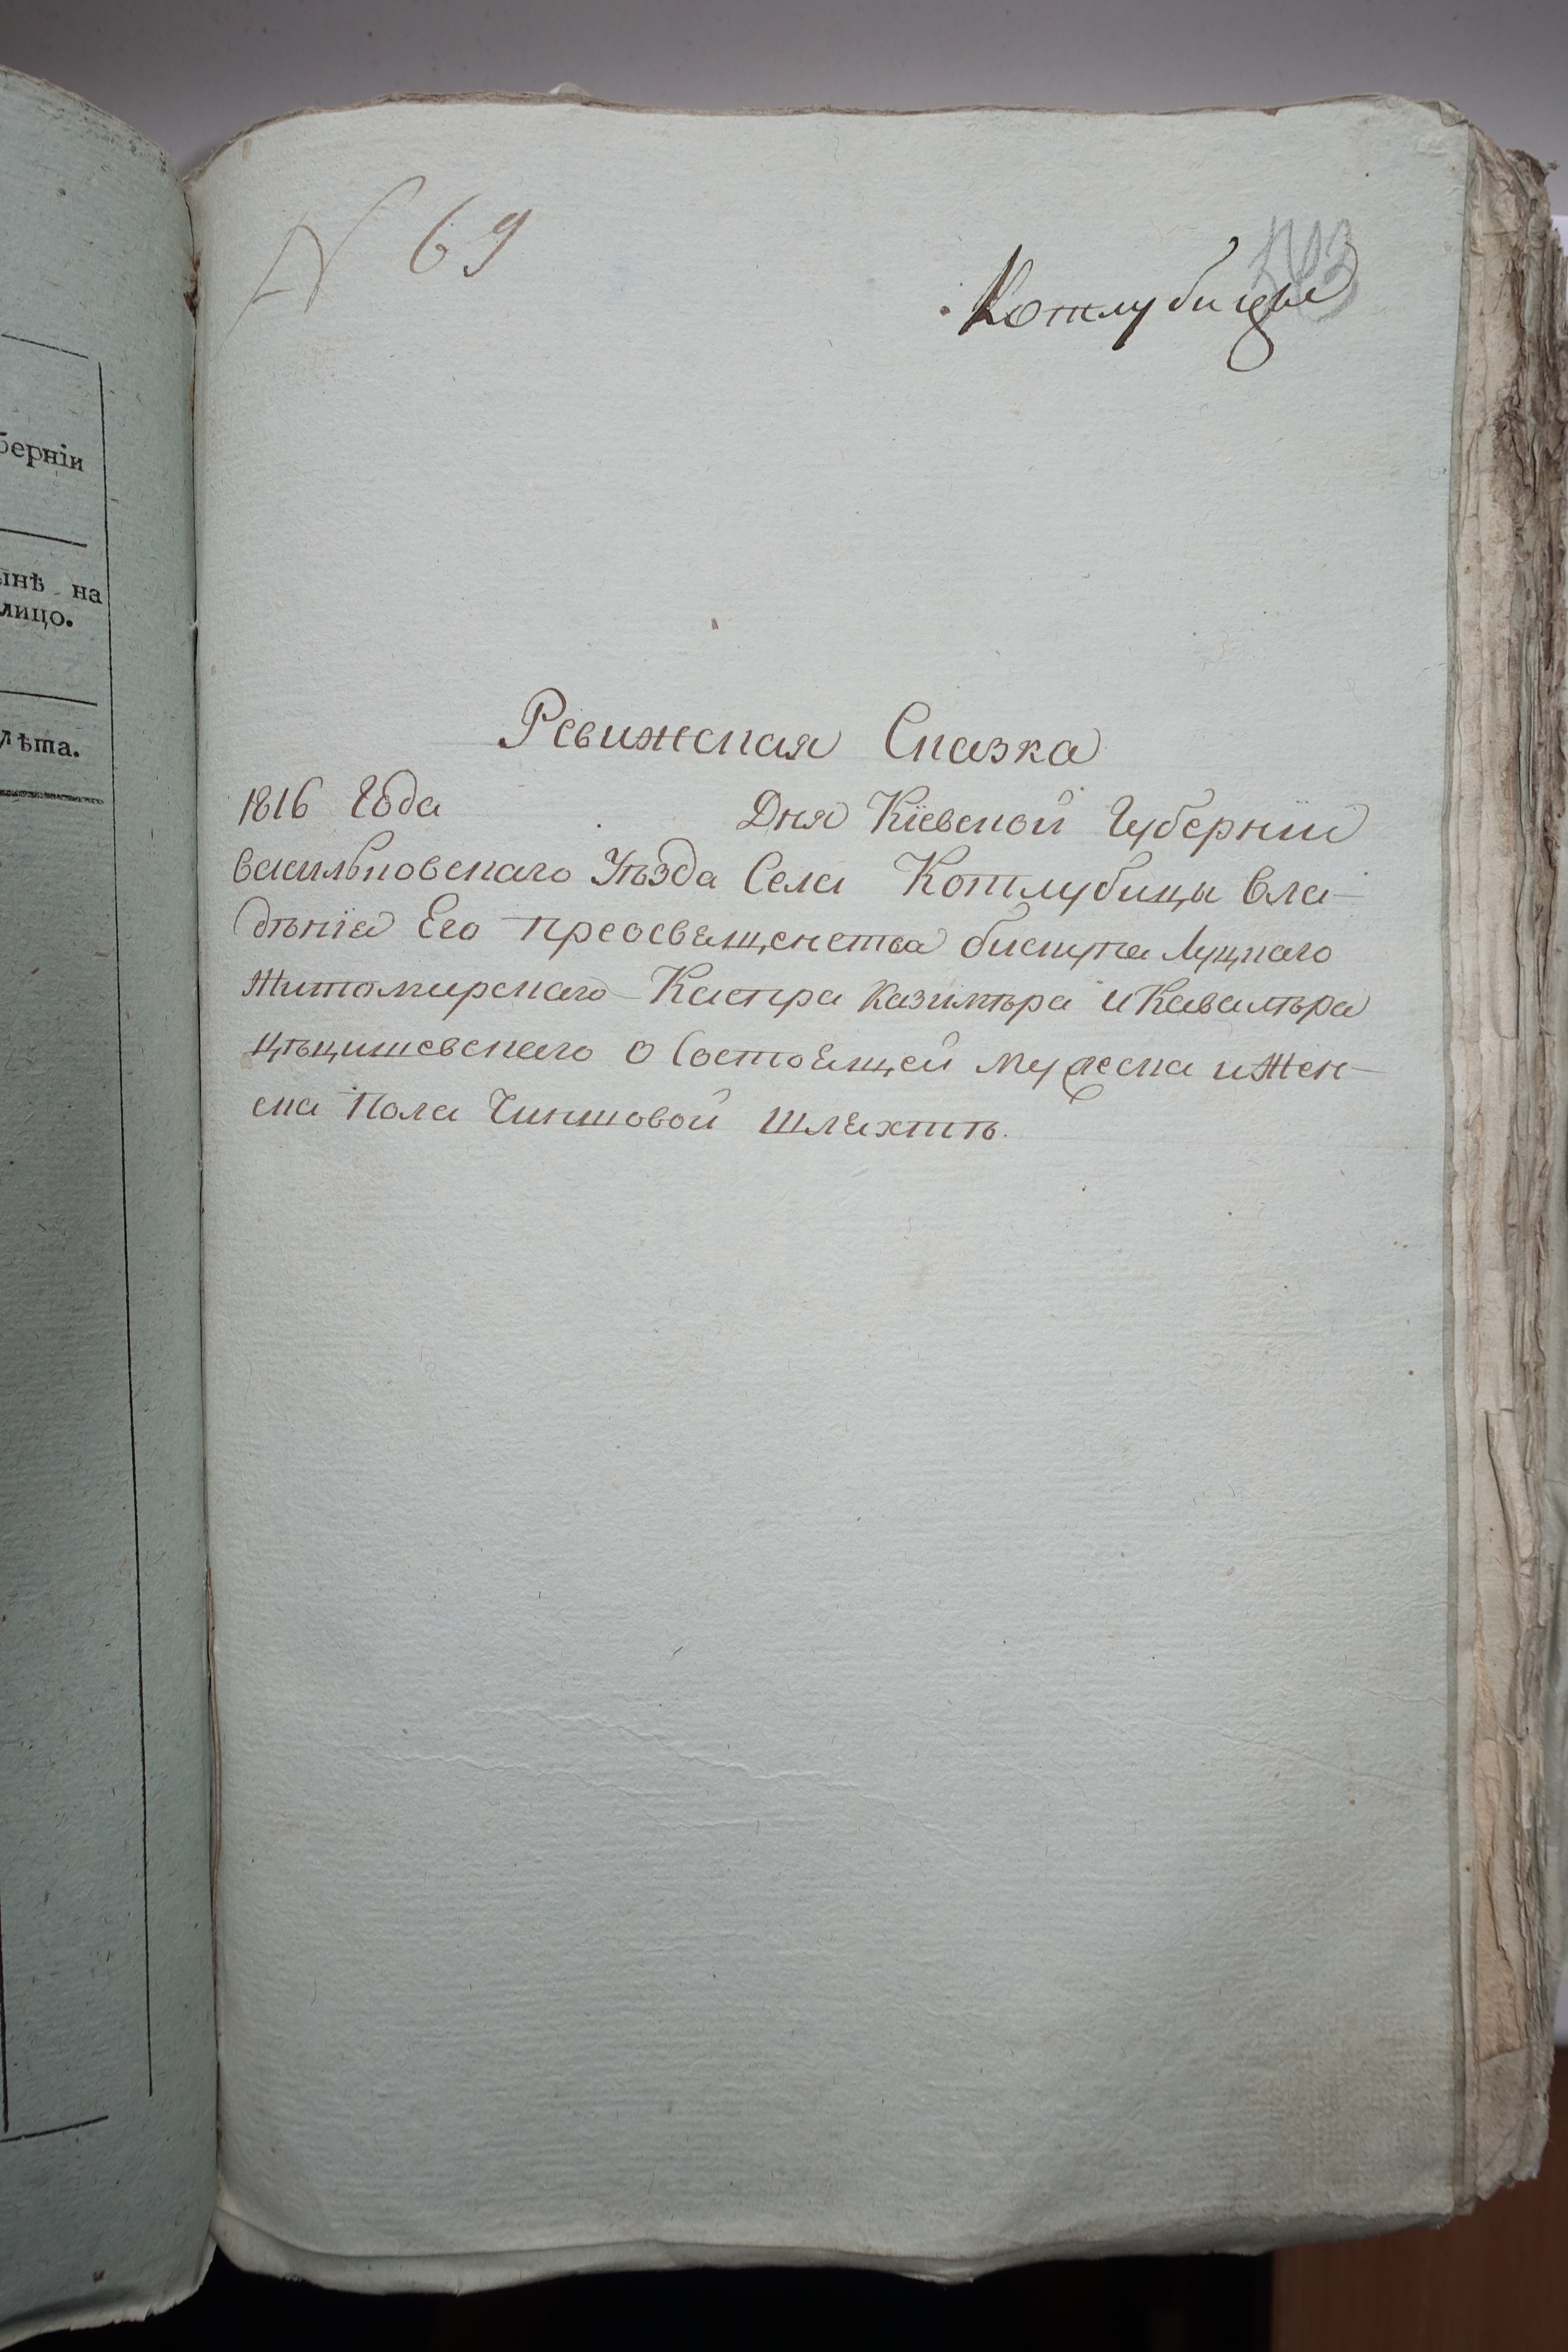 берніи
ынѣ на
лицо.
лѣта.
N 69
Котлубицы
Ревижская Сказка
1816 Года Дня Кіевской Губерніи
Васильковскаго Уѣзда Села Котлубицы Вла-
дѣнія Его преосвященства бискупа Луцкаго
Житомирскаго Каспра Казимѣра и Кавалѣра
Цѣцишевскаго О Состоящей Мужеска и Жен-
ска Пола Чиншовой Шляхтѣ.